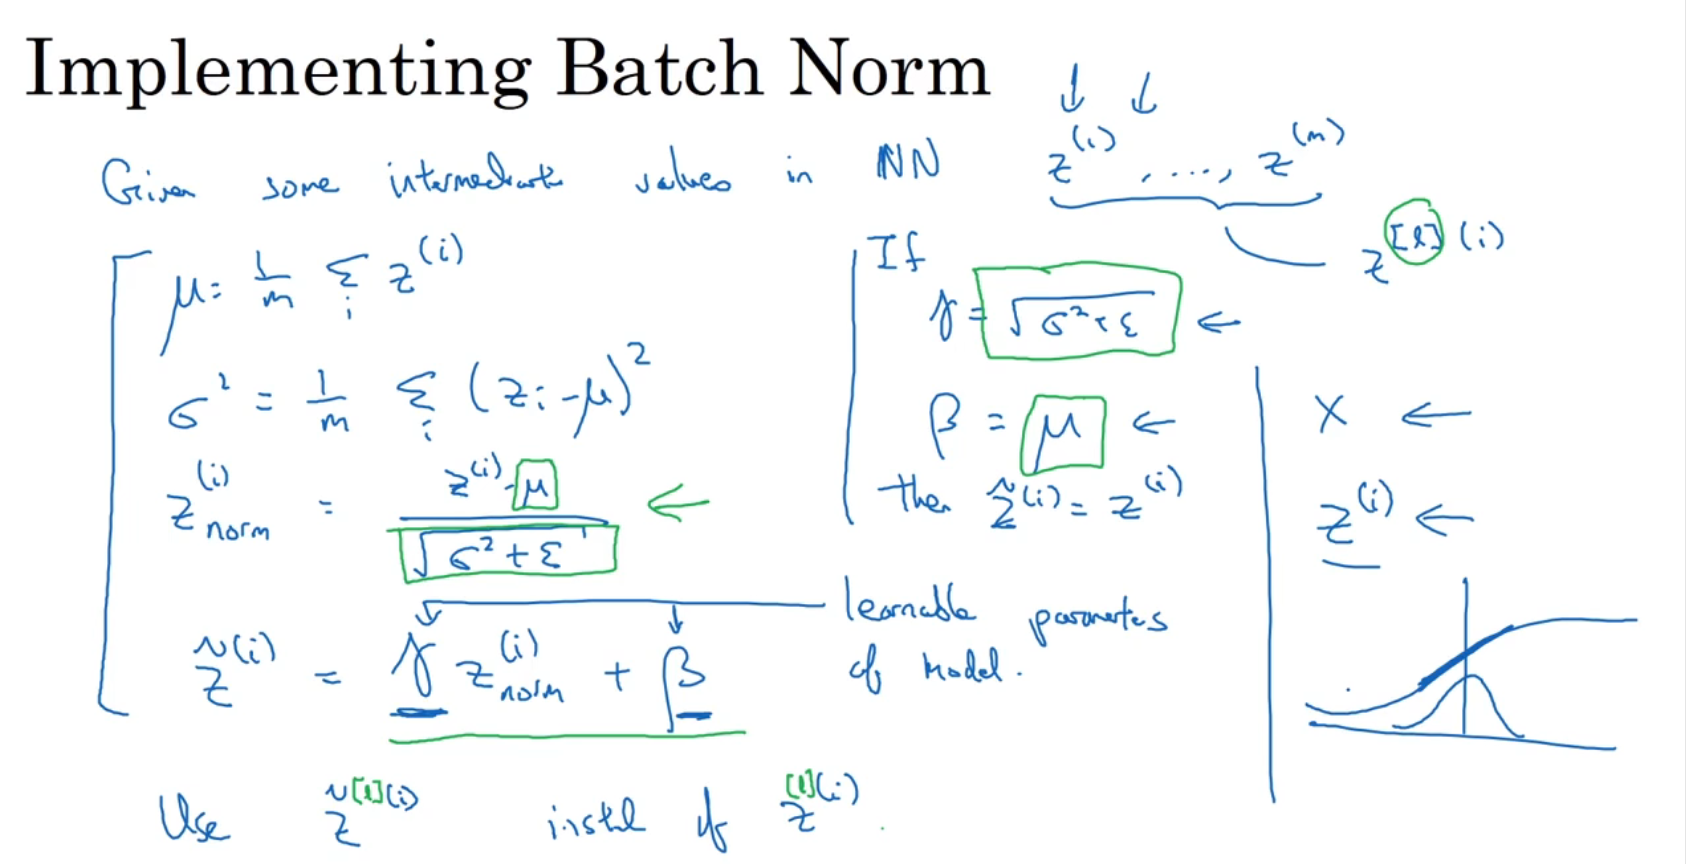 Implementing Batch Norm
Given some intermediate values in NN z^(i), ...., z^(m)
z^[l](i)
μ = 1/m Σ_i z^(i)
σ² = 1/m Σ_i (z_i - μ)²
z^(i)_norm = (z^(i) - μ) / √(σ² + ε)
z̃^(i) = γ z^(i)_norm + β
learnable parameters
of model.
If
γ = √(σ² + ε) ←
β = μ ←
then z̃^(i) = z^(i)
X ←
z^(i) ←
Use z̃^[l](i) instead of z^[l](i).